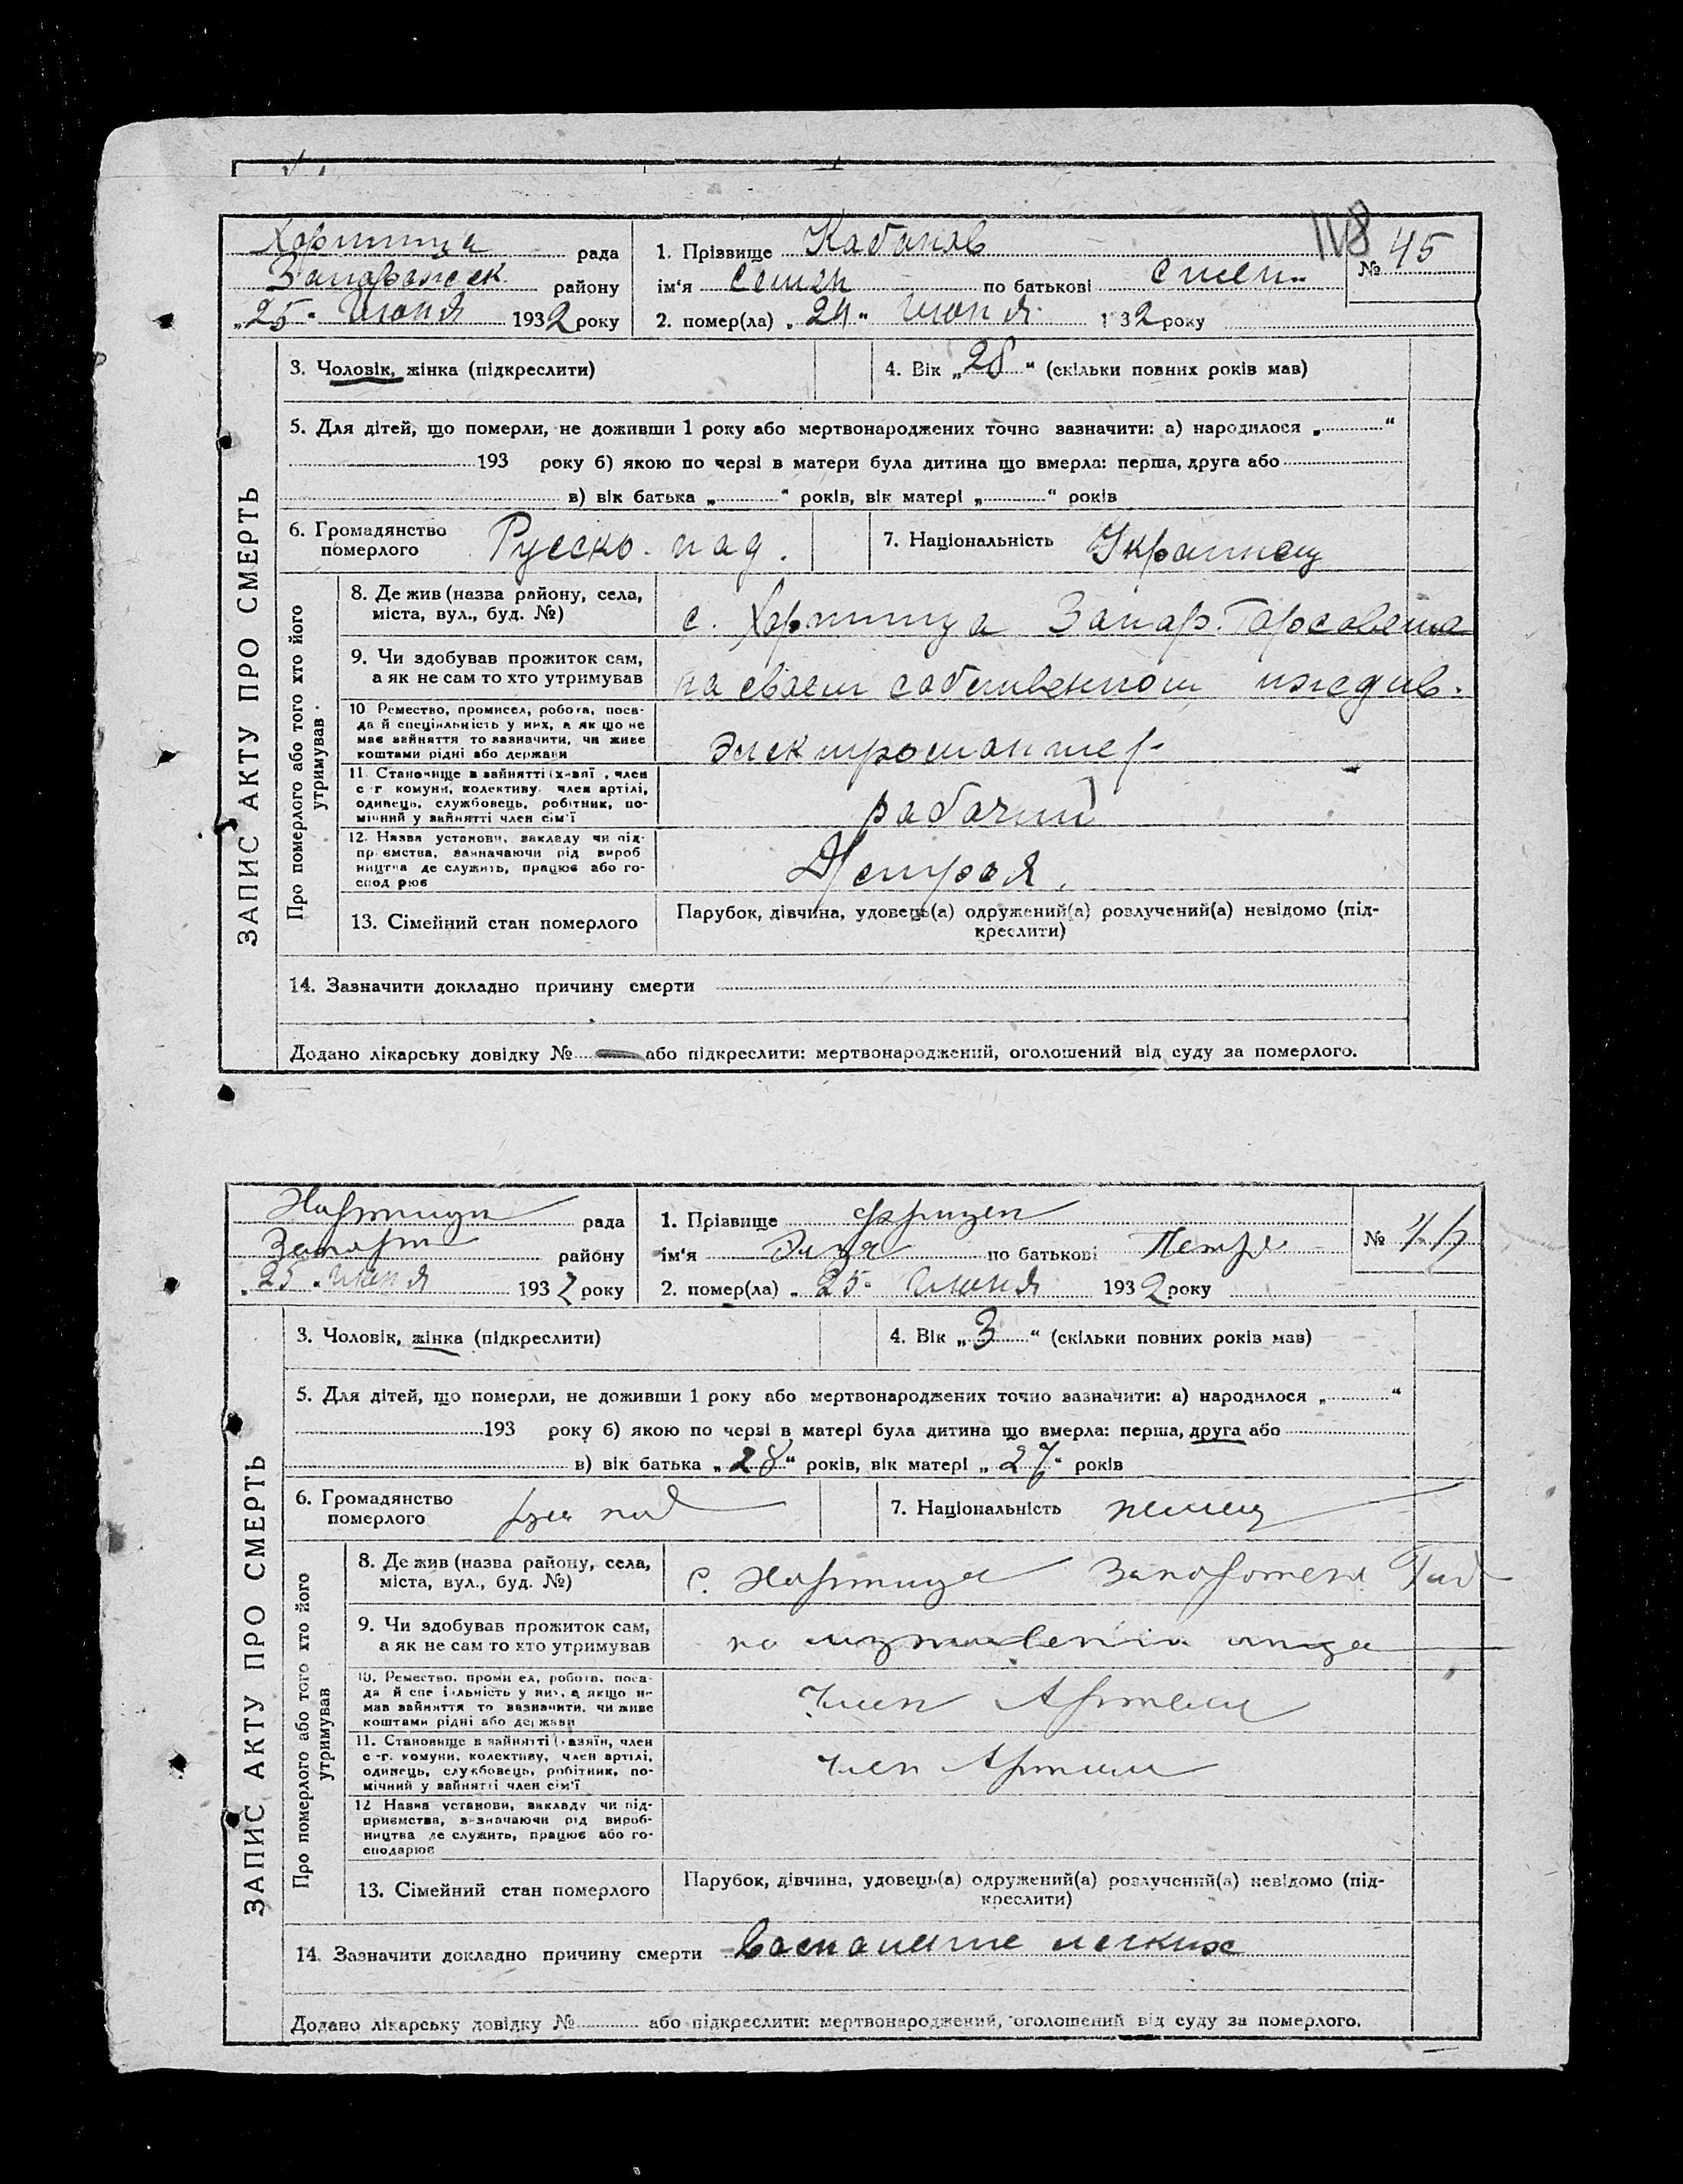 118
Хортица рада
Запорожск. району
„25„ Июня 1932 року
1. Прізвище Кабанов
ім'я Семен по батькові
2. помер(ла) „24„ Июня 1932 року
№ 45
ЗАПИС АКТУ ПРО СМЕРТЬ
3. Чоловік, жінка (підкреслити)
4. Вік „28“ (скільки повних років мав)
5. Для дітей, що померли, не доживши 1 року або мертвонароджених точно зазначити: а) народилося „ “
193 року б) якою по черзі в матери була дитина що вмерла: перша, друга або
в) вік батька „ “ років, вік матері „ “ років
6. Громадянство
померлого
Русско. под.
7. Національність Украинец
Про померлого або того хто його
утримував
8. Де жив (назва району, села,
міста, вул., буд. №)
с. Хортица Запор. Горсовета
9. Чи здобував прожиток сам,
а як не сам то хто утримував
на своем собственном иждив.
10 Ремество, промисел, робота, поса-
да й спеціяльність у них, а як що не
має зайняття то зазначити, чи живе
коштами рідні або держави
Электромонтер
11. Становище в зайнятті (хазяї , член
с-г комуни, колективу, член артілі,
одинець, службовець, робітник, по-
мічний у зайнятті член сім'ї
рабочий
12. Назва установи, закладу чи під-
пр ємства, зазначаючи рід вироб
ництва де служить, працює або го-
спод рює
13. Сімейний стан померлого
Парубок, дівчина, удовець(а) одружений(а) розлучений(а) невідомо (під-
креслити)
14. Зазначити докладно причину смерти
Додано лікарську довідку № або підкреслити: мертвонароджений, оголошений від суду за померлого.
Хортици рада
Запорт району
„25„ Июня 1932 року
1. Прізвище Фризен
ім'я по батькові Петр
2. помер(ла) „25„ Июня 1932 року
№
ЗАПИС АКТУ ПРО СМЕРТЬ
3. Чоловік, жінка (підкреслити)
4. Вік „3“ (скільки повних років мав)
5. Для дітей, що померли, не доживши 1 року або мертвонароджених точно зазначити: а) народилося „ “
193 року б) якою по черзі в матері була дитина що вмерла: перша, друга або
в) вік батька „28“ років, вік матері „27“ років
6. Громадянство
померлого
рус под
7. Національність немец
Про померлого або того хто його
утримував
8. Де жив (назва району, села,
міста, вул., буд. №)
с. Хортица
9. Чи здобував прожиток сам,
а як не сам то хто утримував
на отца
10. Ремество, проми ел, робота, поса-
да й спе іяльність у них, а якщо не
має зайняття то зазначити, чи живе
коштами рідні або держави
Член Артели
11. Становище в зайнятті (хазяїн, член
с-г. комуни, колективу, член артілі,
одинець, службовець, робітник, по-
мічний у зайнятті член сім'ї
член Артели
12 Назва установи, закладу чи під-
приємства, зазначаючи рід вироб-
ництва де служить, працює або го-
сподарює
13. Сімейний стан померлого
Парубок, дівчина, удовець(а) одружений(а) розлучений(а) невідомо (під-
креслити)
14. Зазначити докладно причину смерти Воспаление легких
Додано лікарську довідку № або підкреслити: мертвонароджений, оголошений від суду за померлого.